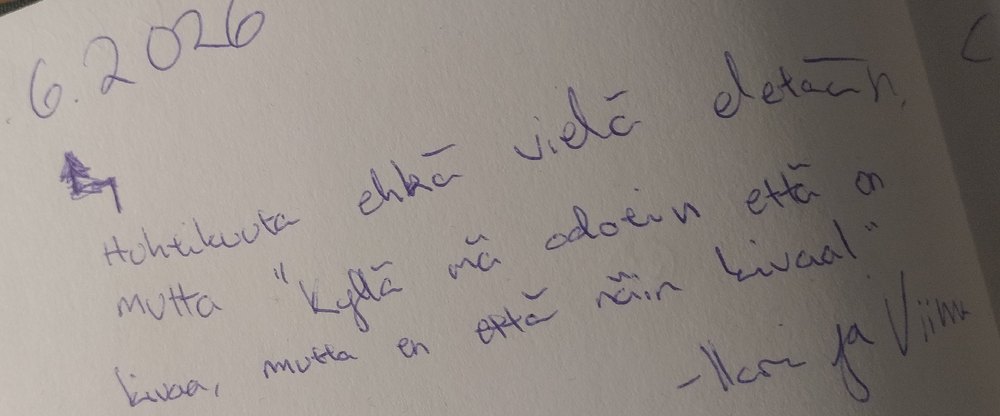 6.2026
Huhtikuuta ehkä vielä eletään,
mutta "Kyllä mä odotin että on
kivaa, mutta en että näin kivaa!"
- ja